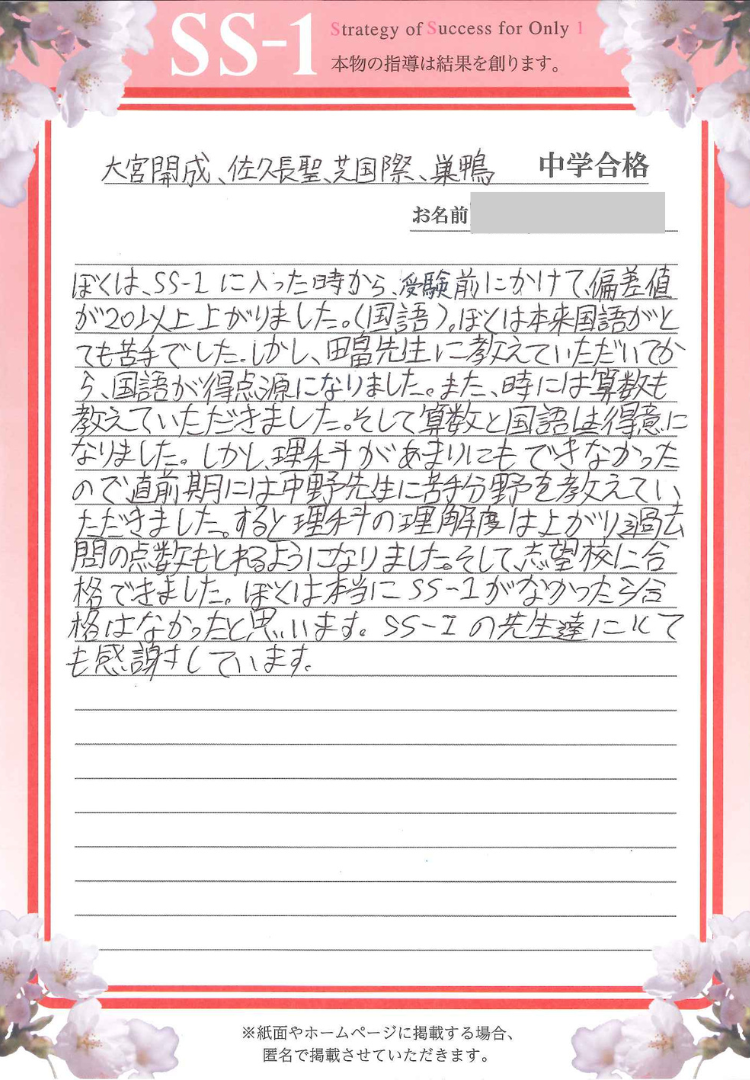 SS-1
Strategy of Success for Only 1
本物の指導は結果を創ります。
大宮開成、佐久長聖、芝国際、巣鴨 中学合格
お名前
ぼくは、SS-1に入った時から、受験前にかけて、偏差値
が20以上上がりました。(国語)。ぼくは本来国語がと
ても苦手でした。しかし、田畠先生に教えていただいてか
ら、国語が得点源になりました。また、時には算数も
教えていただきました。そして算数と国語は得意に
なりました。しかし、理科があまりにもできなかった
ので直前期には中野先生に苦手分野を教えてい
ただきました。すると理科の理解度は上がり過去
問の点数もとれるようになりました。そして、志望校に合
格できました。ぼくは本当にSS-1がなかったら合
格はなかったと思います。SS-1の先生達にとて
も感謝しています。
※紙面やホームページに掲載する場合、
匿名で掲載させていただきます。